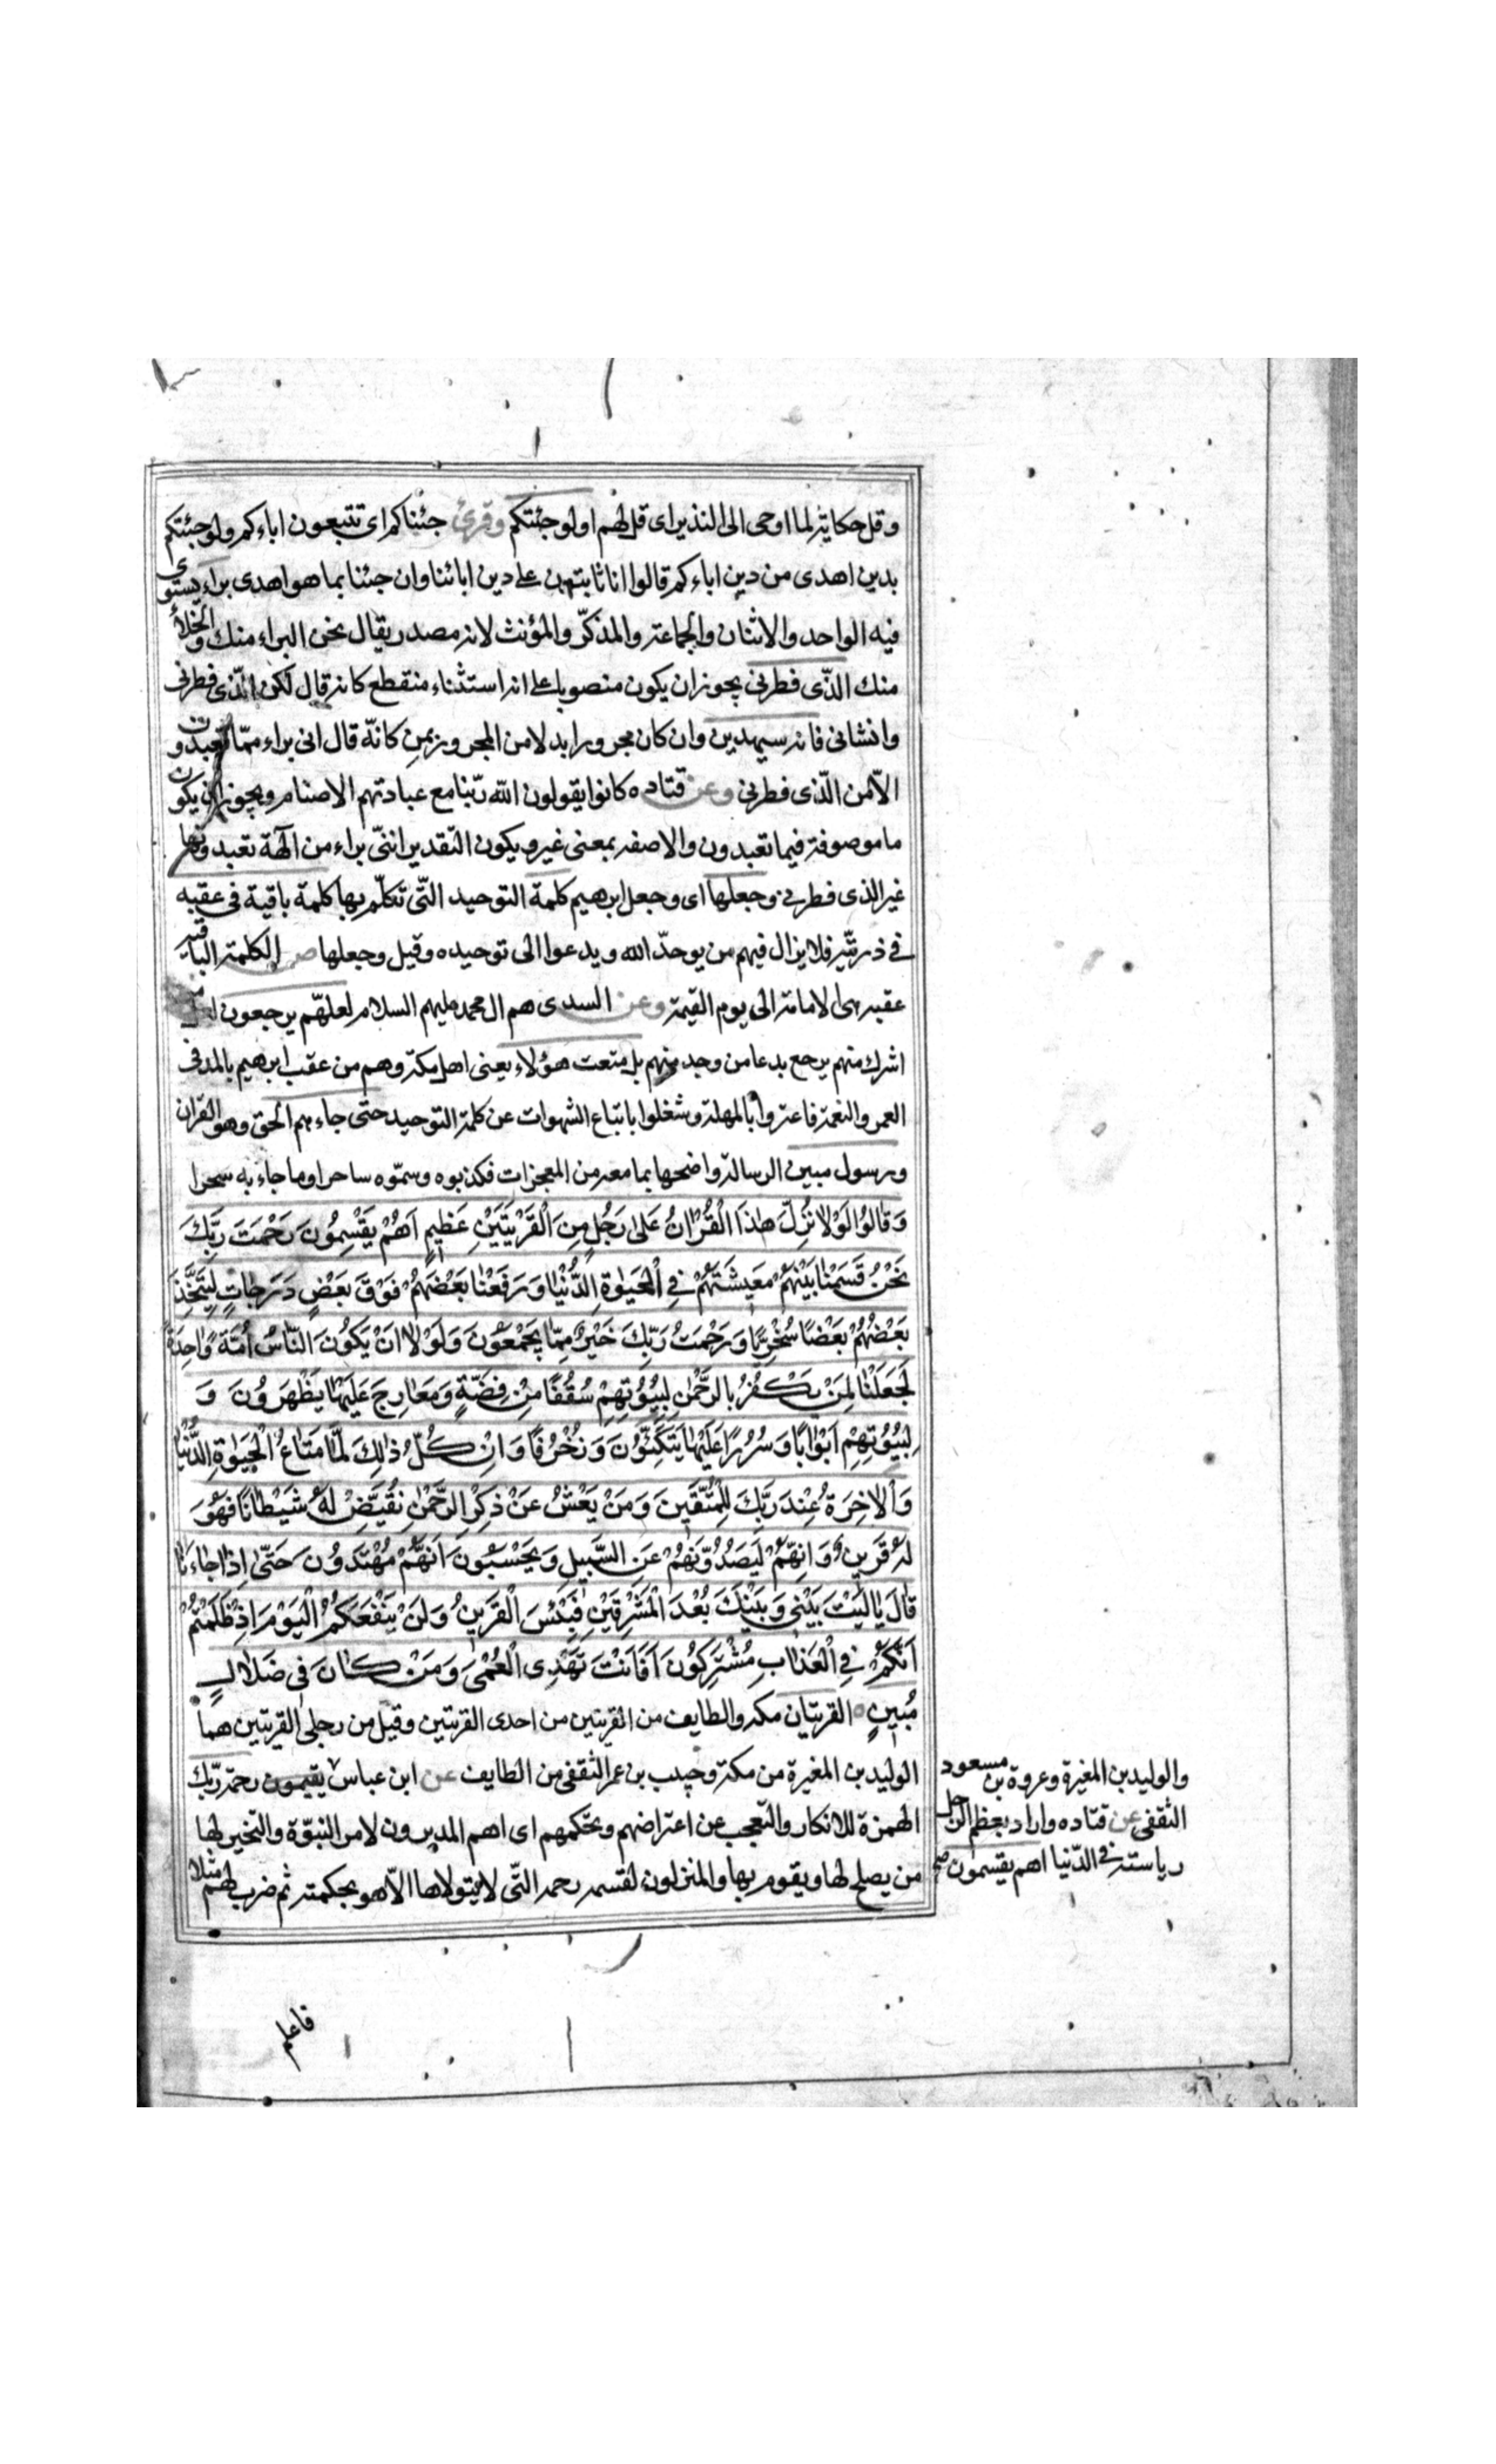 و قل حكاية لما اوحى الى النذير اى قل لهم اولو جئتكم وقرئ جئناكم اى تتبعون اباءكم ولو جئتكم
بدين اهدى من دين اباءكم قالوا انا ثابتون على دين ابائنا وان جئتنا بما هو اهدى براء يستوى
فيه الواحد والاثنان والجماعة والمذكّر والمؤنث لانه مصدر يقال نحن البراء منك والخلاء
منك الذّى فطرنى يجوز ان يكون منصوبا على انه استثناء منقطع كانه قال لكن الذّى فطرنى
وانشانى فانه سيهدين وان كان مجرورا بدلا من المجرور بمن كانّه قال انى براء ممّا تعبدون
الاّ من الذّى فطرنى وعن قتاده كانوا يقولون الله ربّنا مع عبادتهم الاصنام ويجوز ان يكون
ما موصوفة فيما تعبدون والا صفة بمعنى غير ويكون التقدير اننّى براء من آلهة تعبدونها
غير الذى فطرنى وجعلها اى وجعل ابرهيم كلمة التوحيد التّى تكلّم بها كلمة باقية فى عقبه
فى ذريّته فلا يزال فيهم من يوحدّ الله ويدعوا الى توحيده وقيل وجعلها الكلمة الباقية
عقبه هى الامامة الى يوم القيمة وعن السدى هم ال محمد عليهم السلام لعلهّم يرجعون لعلّ من
اشرك منهم يرجع بدعا من وحد منهم بل متعت هؤلاء يعنى اهل مكة وهم من عقب ابرهيم بالمد فى
العمر والنعمة فاغتروا بالمهلة وشغلوا باتباع الشهوات عن كلمة التوحيد حتى جاءهم الحق وهو القران
ورسول مبين الرسالة واضحها بما معه من المعجزات فكذبوه وسمّوه ساحرا وما جاء به سحرا
وَقَالُوا لَوْلَا نُزِّلَ هٰذَا الْقُرْاٰنُ عَلىٰ رَجُلٍ مِنَ الْقَرْيَتَيْنِ عَظِيمٍ اَهُمْ يَقْسِمُونَ رَحْمَتَ رَبِّكَ
نَحْنُ قَسَمْنٰا بَيْنَهُمْ مَعِيشَتَهُمْ فِي الْحَيٰوةِ الدُّنْيٰا وَرَفَعْنٰا بَعْضَهُمْ فَوْقَ بَعْضٍ دَرَجٰاتٍ لِيَتَّخِذَ
بَعْضُهُمْ بَعْضًا سُخْرِيًّا وَرَحْمَتُ رَبِّكَ خَيْرٌ مِمّٰا يَجْمَعُونَ وَلَوْلٰا اَنْ يَكُونَ النّٰاسُ اُمَّةً وٰاحِدَةً
لَجَعَلْنٰا لِمَنْ يَكْفُرُ بِالرَّحْمٰنِ لِبُيُوتِهِمْ سُقُفًا مِنْ فِضَّةٍ وَمَعٰارِجَ عَلَيْهٰا يَظْهَرُونَ وَ
لِبُيُوتِهِمْ اَبْوٰابًا وَسُرُرًا عَلَيْهٰا يَتَّكِئُونَ وَزُخْرُفًا وَاِنْ كُلُّ ذٰلِكَ لَمّٰا مَتٰاعُ الْحَيٰوةِ الدُّنْيٰا
وَالْاٰخِرَةُ عِنْدَ رَبِّكَ لِلْمُتَّقِينَ وَمَنْ يَعْشُ عَنْ ذِكْرِ الرَّحْمٰنِ نُقَيِّضْ لَهُ شَيْطٰانًا فَهُوَ
لَهُ قَرِينٌ وَاِنَّهُمْ لَيَصُدُّونَهُمْ عَنِ السَّبِيلِ وَيَحْسَبُونَ اَنَّهُمْ مُهْتَدُونَ حَتّٰى اِذٰا جٰاءَنٰا
قٰالَ يٰا لَيْتَ بَيْنِي وَبَيْنَكَ بُعْدَ الْمَشْرِقَيْنِ فَبِئْسَ الْقَرِينُ وَلَنْ يَنْفَعَكُمُ الْيَوْمَ اِذْ ظَلَمْتُمْ
اَنَّكُمْ فِي الْعَذٰابِ مُشْتَرِكُونَ اَفَاَنْتَ تَهْدِى الْعُمْىَ وَمَنْ كٰانَ فِى ضَلٰالٍ
مُبِينٍ القريتان مكه والطايف من القريتين من احدى القريتين وقيل من رجلى القريتين هما
الوليد بن المغيرة من مكة وحبيب بن عمر الثقفى من الطايف عن ابن عباس يقيمون رحمة ربّك
الهمزة للانكار والتّعجب عن اعتراضهم وتحكمهم اى اهم المدبرون لامر النبوّة والتخير لها
من يصلح لها ويقوم بها والمتولون لقسمة رحمة التّى لا يتولاها الاّ هو بحكمته ثم ضرب لهم مثلا
والوليد بن المغيرة وعروة بن مسعود
الثقفى عن قتاده واراد بعظم الرجل
رياسته فى الدّنيا اهم يقسمون صح
فاعلم